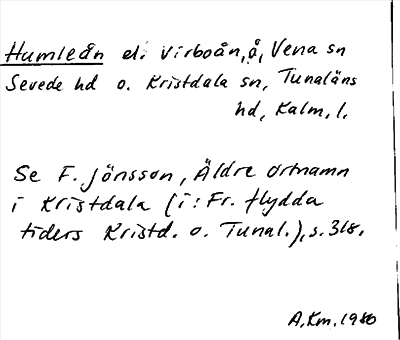 Humleån el. Virboån, å, Vena sn
Sevede hd o. Kristdala sn, Tunaläns
hd, Kalm. l.
Se F. Jönsson, Äldre ortnamn
i Kristdala (i: Fr. flydda
tiders Kristd. o. Tunal.), s. 318.
A. Km. 1980